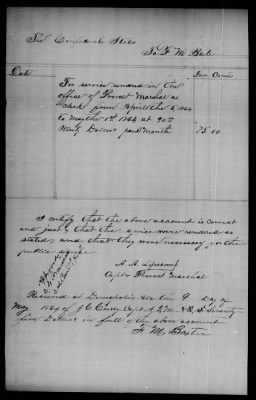 The Confederate States
To F. M. Baxter
Date
Dols Cents
For service rendered in the
office of Provost Marshal as
clerk from April the 5 1864
to May the 1st 1864 at 90.00
Ninty Dollars per month
75.00
I certify that the above account is correct
and just; that the service were rendered as
stated, and that they were necessary for the
public service
A. A. Lipscomb
Capt & Provost Marshal
Received at Demopolis Ala the 9 day of
May 1864 of J. C. Curry Capt A Q M. C.S. Seventy
five Dollars in full of the above account
F. M. Baxter